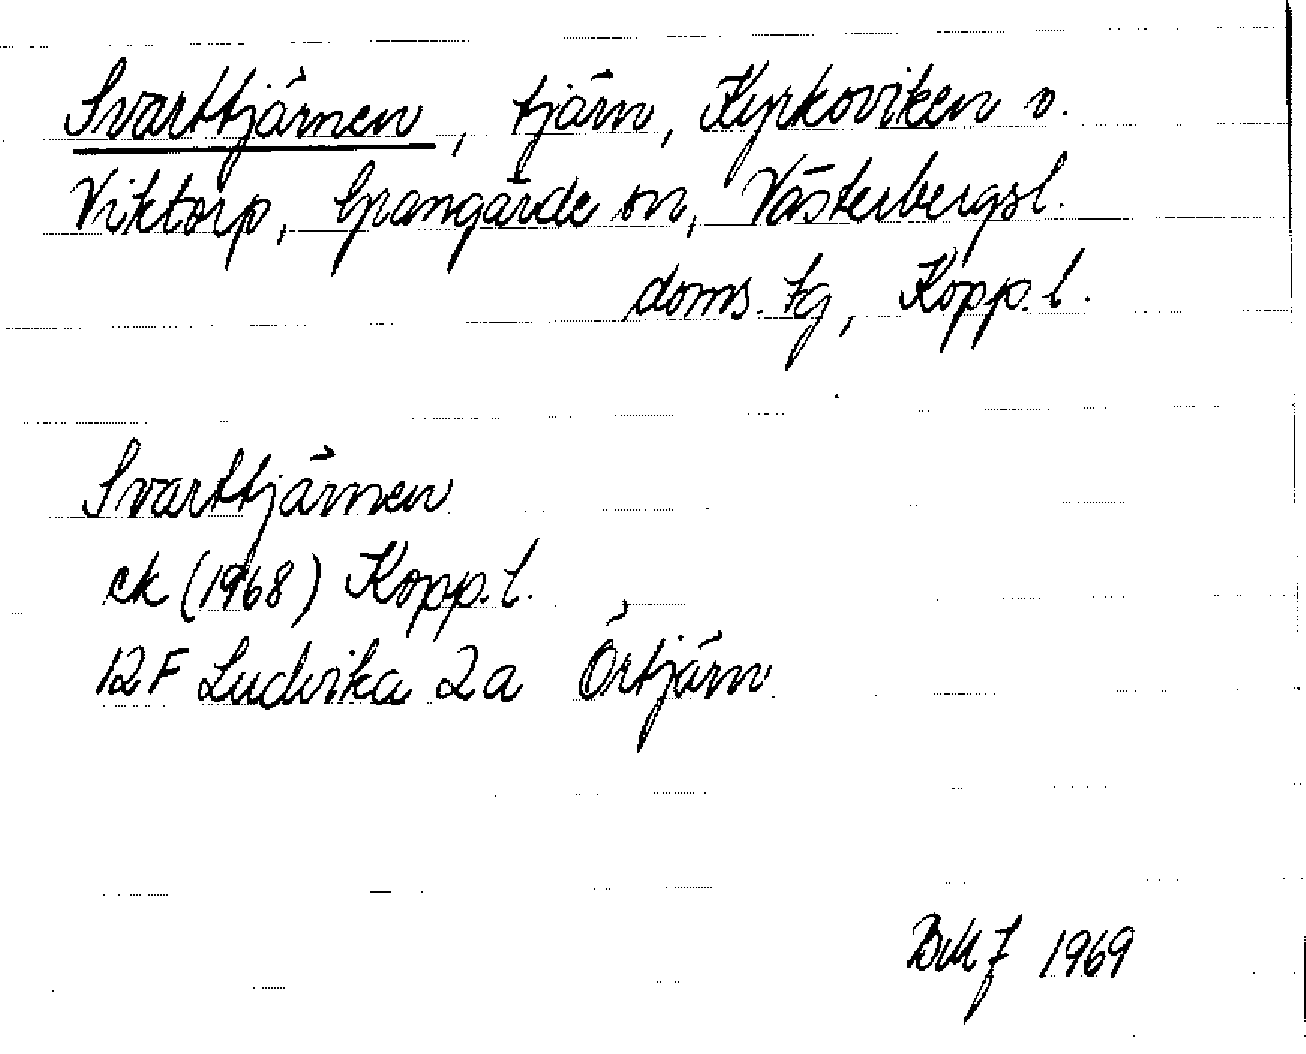 Svarttjärnen, tjärn, Kyrkoviken o.
Viktorp, Grangärde sn, Västerbergsl.
doms. tg, Kopp. l.
Svarttjärnen
ek (1968) Kopp. l.
12F Ludvika 2a Örtjärn
1969